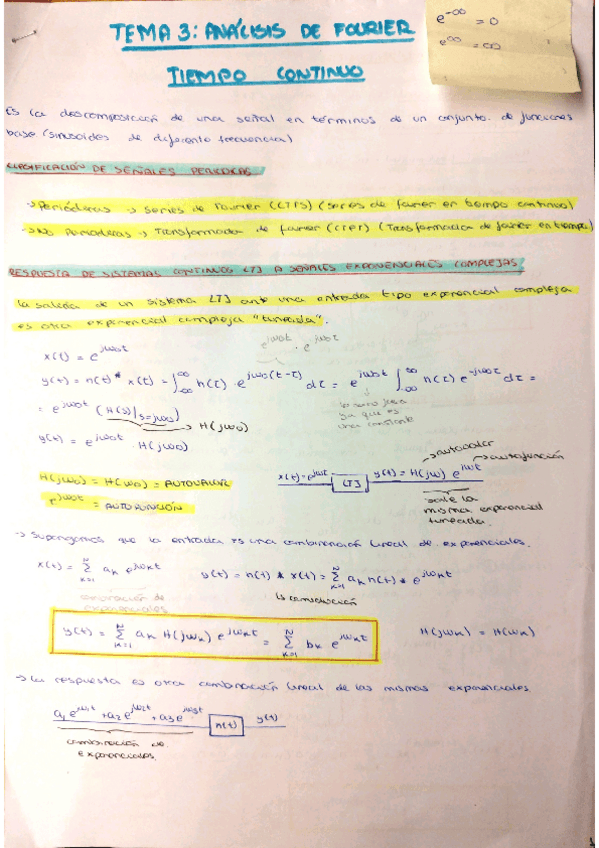 TEMA 3: ANÁLISIS DE FOURIER
TIEMPO CONTINUO
e^-∞ = 0
e^∞ = ∞
Es la descomposición de una señal en términos de un conjunto de funciones
base (sinusoides de diferente frecuencia)
CLASIFICACIÓN DE SEÑALES PERIODICAS
→ Periódicas → Series de Fourier (CTFS) (Series de fourier en tiempo continuo)
→ No Periodicas → Transformada de fourier (CTFT) (Transformacion de fourier en tiempo)
RESPUESTA DE SISTEMAS CONTINUOS LTI A SEÑALES EXPONENCIALES COMPLEJAS
La salida de un sistema LTI ante una entrada tipo exponencial compleja
es otra exponencial compleja "tuneada".
x(t) = e^jω0t
e^jω0t · e^-jω0τ
y(t) = h(t) * x(t) = ∫_-∞^∞ h(τ) · e^jω0(t-τ) dτ = e^jω0t ∫_-∞^∞ h(τ) e^-jω0τ dτ =
ya que es
una constante
= e^jω0t (H(s)|s=jω0) → H(jω0)
y(t) = e^jω0t · H(jω0)
H(jω0) = H(ω0) = AUTOVALOR
e^jω0t = AUTOFUNCIÓN
x(t) = e^jωt LTI y(t) = H(jω) e^jωt
→ autovalor
→ autofunción
sale la
misma exponencial
tuneada.
→ Supongamos que la entrada es una combinación lineal de exponenciales.
x(t) = Σ_k=1^N ak e^jωkt
y(t) = h(t) * x(t) = Σ_k=1^N ak h(t) * e^jωkt
exponenciales
↳ convolución
y(t) = Σ_k=1^N ak H(jωk) e^jωkt = Σ_k=1^N bk e^jωkt
H(jωk) = H(ωk)
→ La respuesta es otra combinación lineal de las mismas exponenciales
a1 e^jω1t + a2 e^jω2t + a3 e^jω3t h(t) y(t)
combinación de
exponenciales.